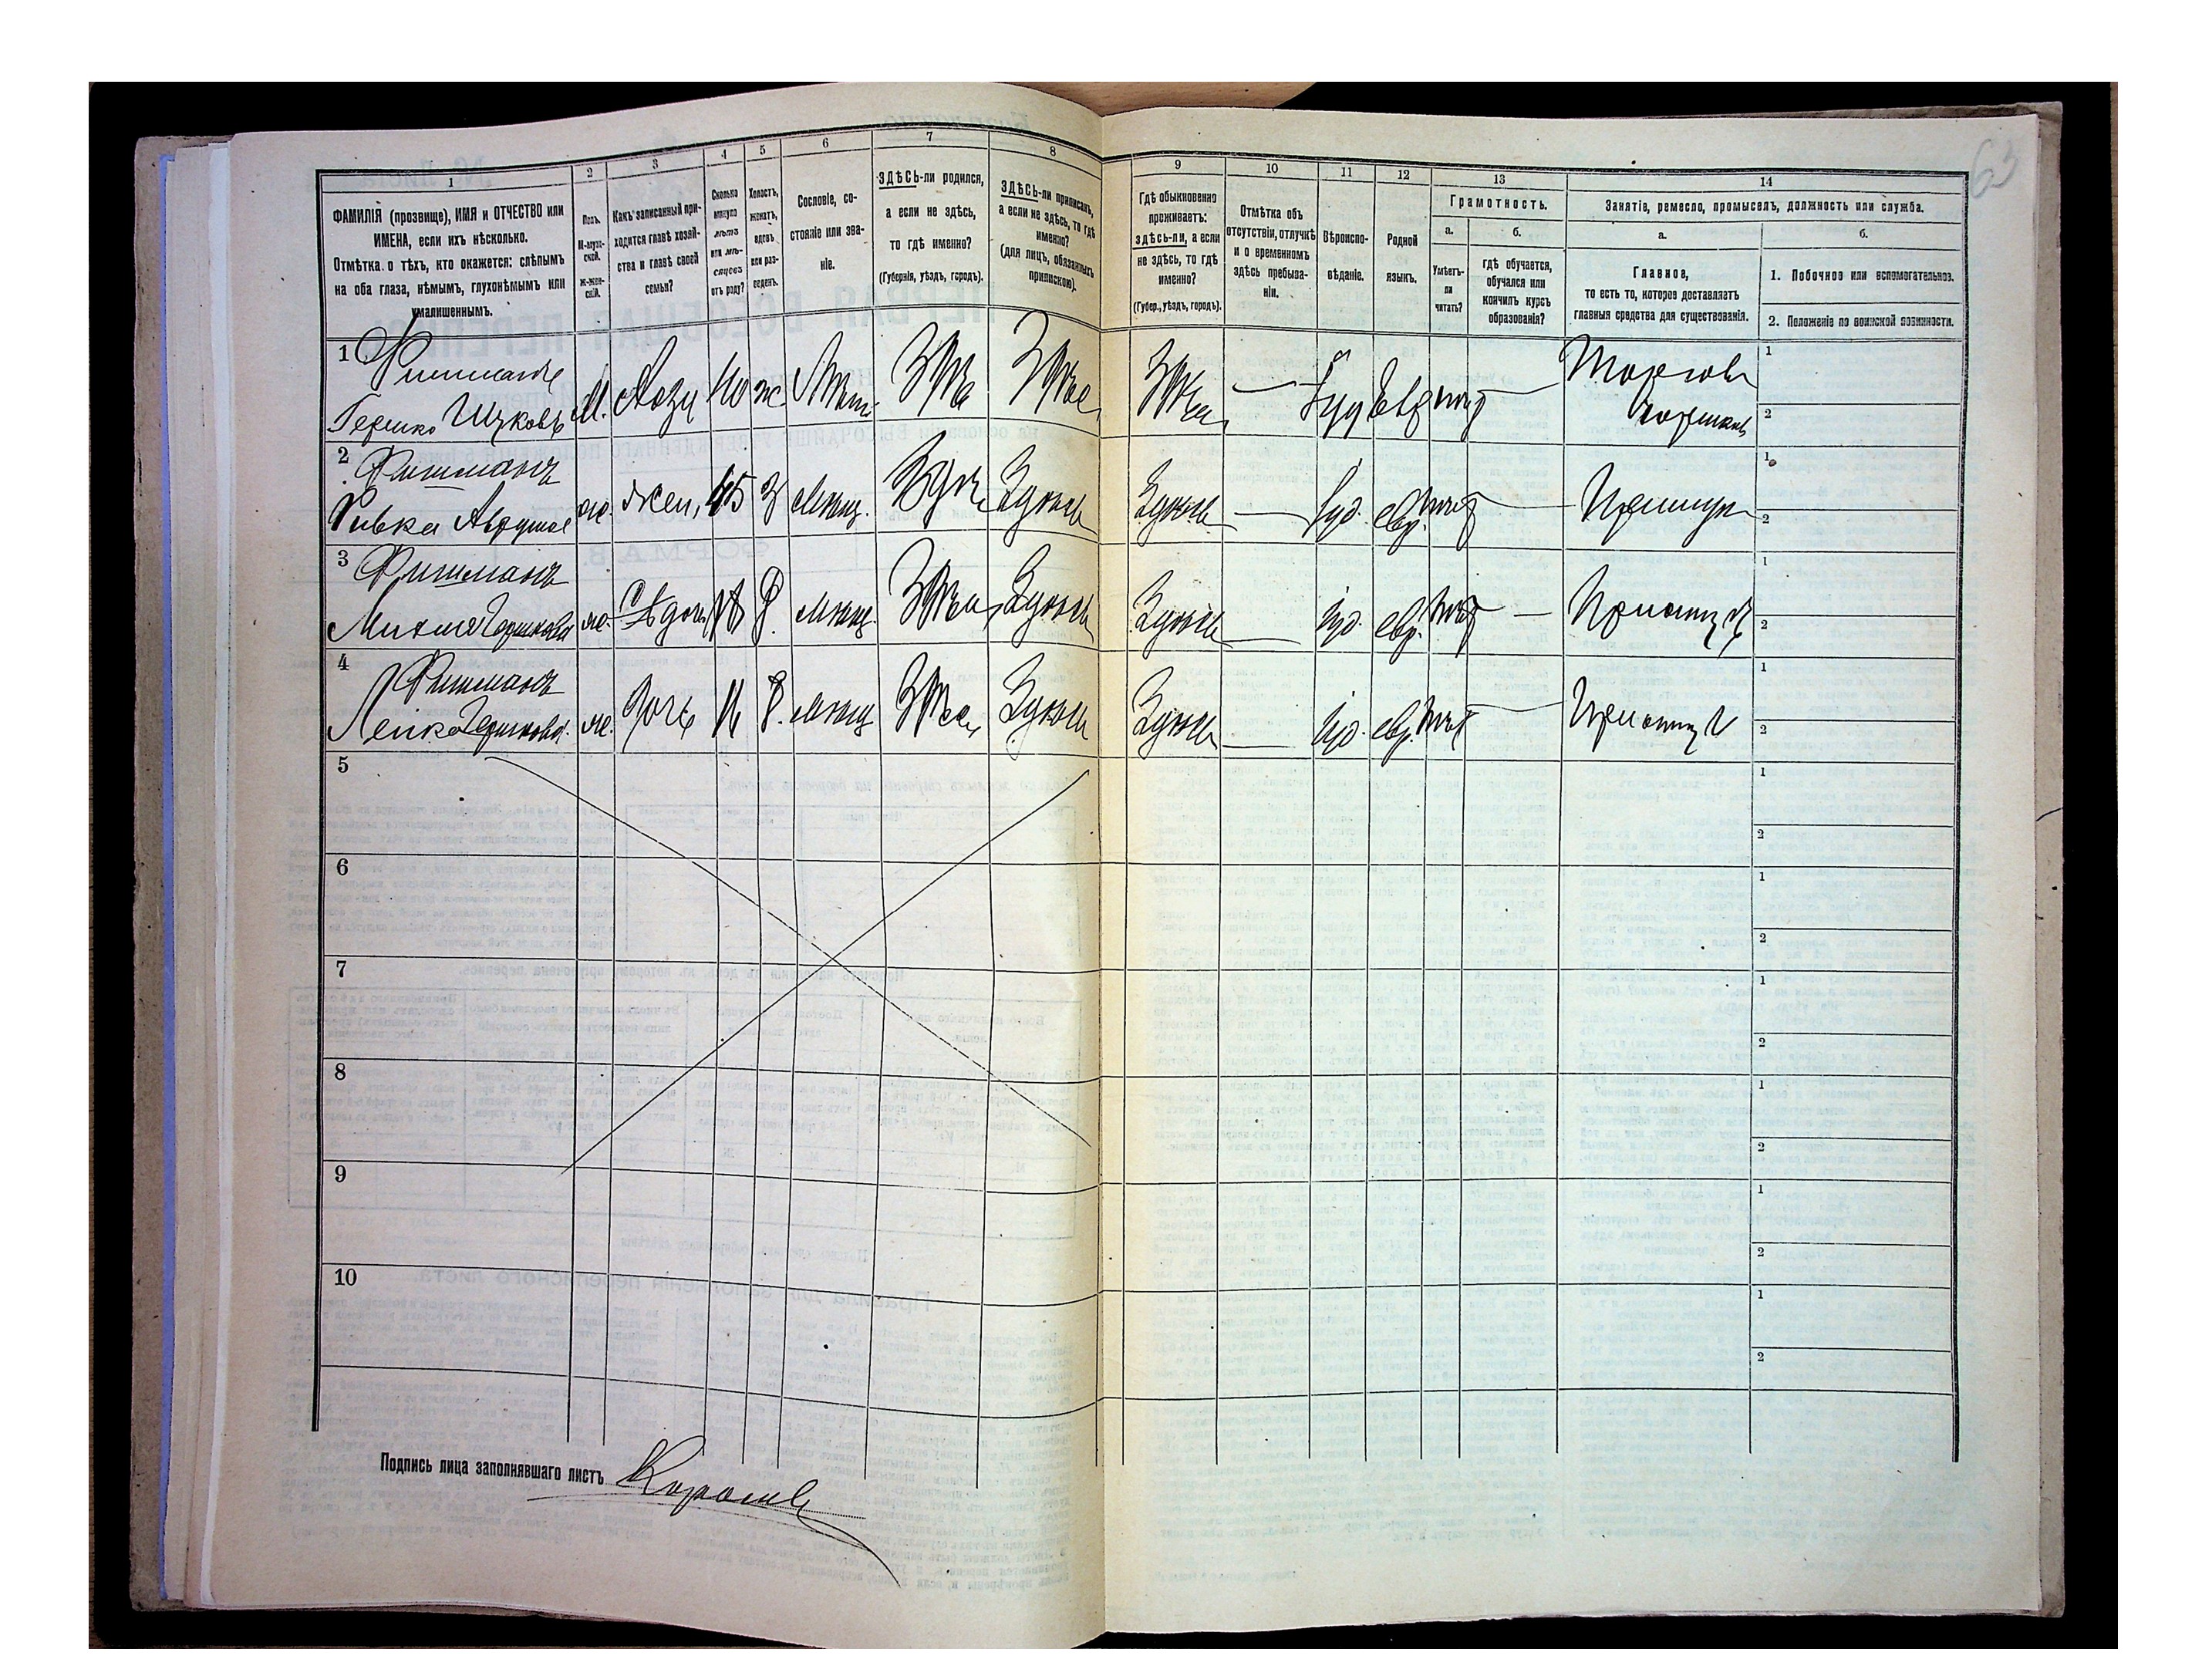 63
1 2 3 4 5 6 7 8 9 10 11 12 13 14
ФАМИЛІЯ (прозвище), ИМЯ и ОТЧЕСТВО или
ИМЕНА, если ихъ нѣсколько.
Отмѣтка о тѣхъ, кто окажется: слѣпымъ
на оба глаза, нѣмымъ, глухонѣмымъ или
умалишеннымъ.
Полъ.
М-муж-
ской.
ж-жен-
скій.
Какъ записанный при-
ходится главѣ хозяй-
ства и главѣ своей
семьи?
Сколько
минуло
лѣтъ
или мѣ-
сяцевъ
отъ роду?
Холостъ,
женатъ,
вдовъ
или раз-
веденъ.
Сословіе, со-
стояніе или зва-
ніе.
ЗДѢСЬ-ли родился,
а если не здѣсь,
то гдѣ именно?
(Губернія, уѣздъ, городъ).
ЗДѢСЬ-ли приписанъ,
а если не здѣсь, то гдѣ
именно?
(для лицъ, обязанныхъ
припискою).
Гдѣ обыкновенно
проживаетъ:
здѣсь-ли, а если
не здѣсь, то гдѣ
именно?
(Губер., уѣздъ, городъ).
Отмѣтка объ
отсутствіи, отлучкѣ
и о временномъ
здѣсь пребыва-
ніи.
Вѣроиспо-
вѣданіе.
Родной
языкъ.
Грамотность.
а.
Умѣетъ-
ли
читать?
б.
гдѣ обучается,
обучался или
кончилъ курсъ
образованія?
Занятіе, ремесло, промыселъ, должность или служба.
а.
Главное,
то есть то, которое доставляетъ
главныя средства для существованія.
б.
1. Побочное или вспомогательное.
2. Положеніе по воинской повинности.
1 Фишманъ
Гершко Ицковъ М. Хозя 40 ж
Торгов
1
2
2 Фишманъ
Ривка жен. 45 З мѣщ. Здѣсь Здѣсь Здѣсь — іуд. евр. нѣт —
1
2
3 Фишманъ
Гершкова 18 мѣщ. Здѣсь Здѣсь — іуд. евр. нѣт —
1
2
4 Фишманъ
Лейка Гершкова дочь мѣщ Здѣсь Здѣсь — іуд. евр. нѣт —
1
2
5
1
2
6
1
2
7
1
2
8
1
2
9
1
2
10
1
2
Подпись лица заполнявшаго листъ